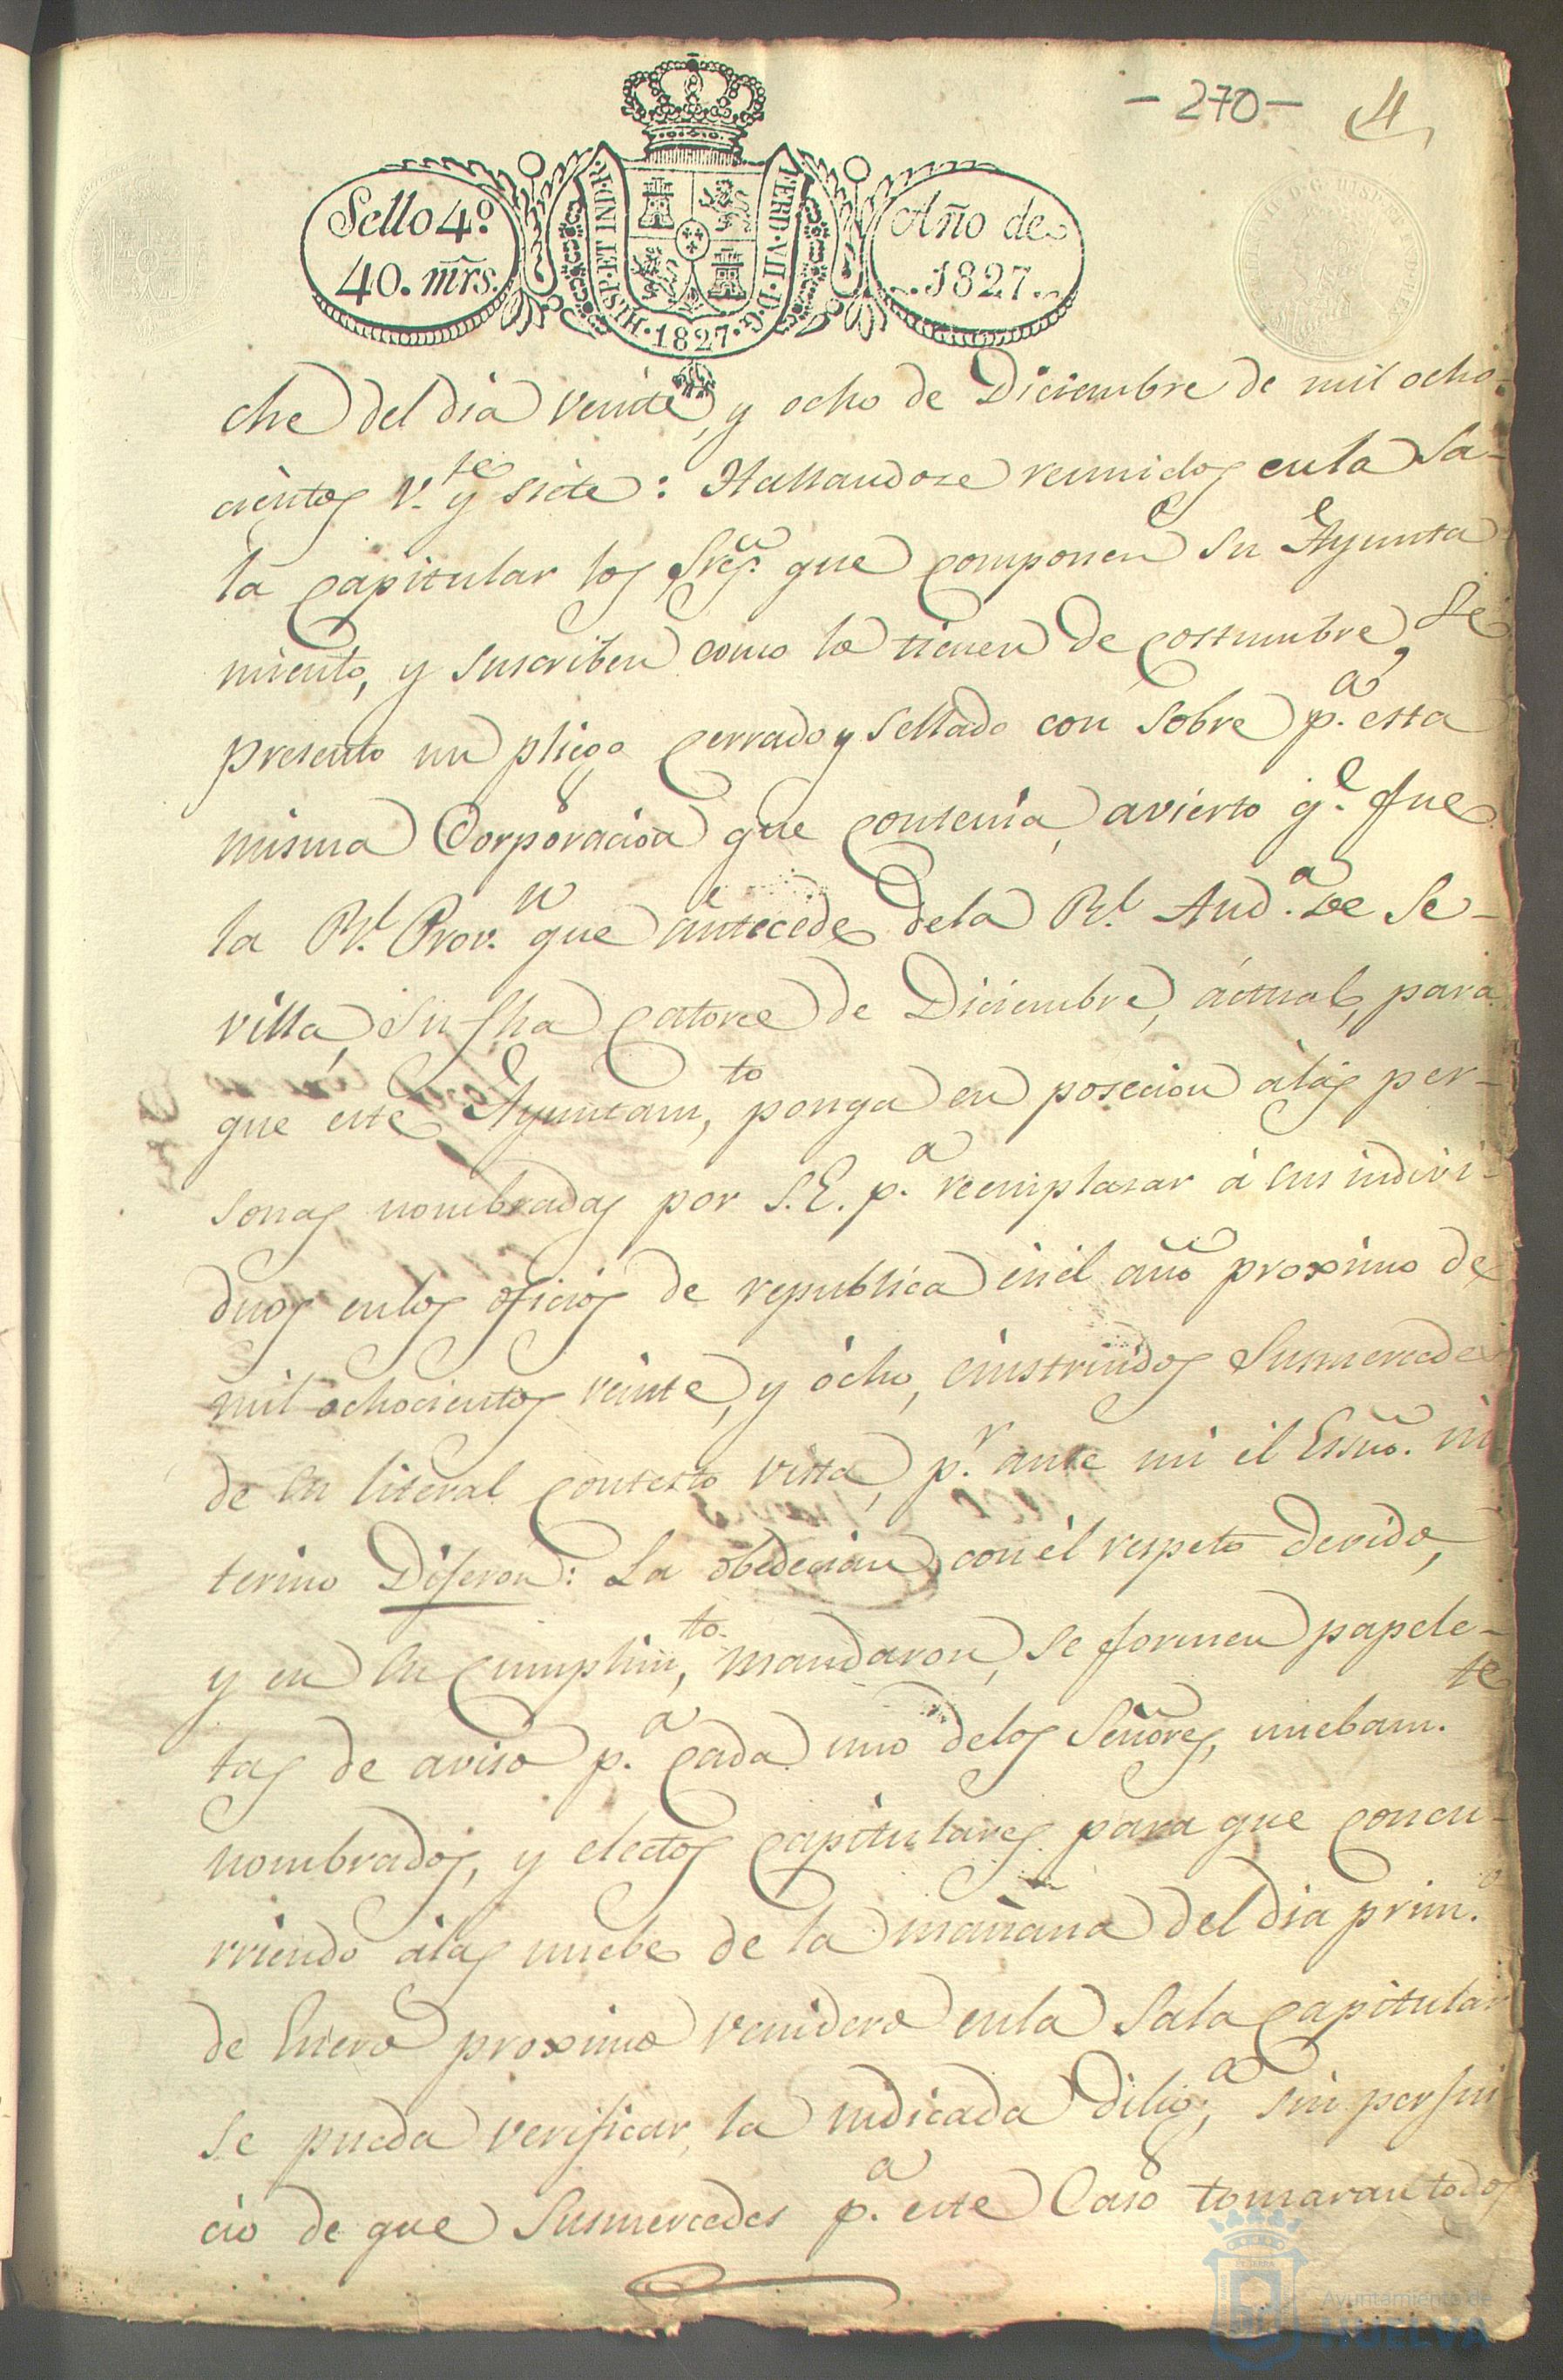 - 270 - 4
Sello 4º
40. mrs.
HISP. ET IND. R.
FERD. VII. D. G.
1827
Año de
1827.
che del dia veinte, y ocho de Diciembre de mil ocho-
cientos v.te y siete: Hallandose reunidos enla Sa-
la Capitular los Sres. que componen su Ayunta
miento, y suscriben como lo tienen de costumbre, se
presento un pliego cerrado y sellado con sobre p.a esta
misma Corporacion que contenia, avierto q.e fue
la Rl. Prov.n que antecede dela Rl. Aud.a de Se-
villa, su fha catorce de Diciembre, actual, para
que este Ayuntam,to ponga en posecion alas per-
sonas nombradas por S.E. p.a reemplasar á sus indivi-
duos enlos oficios de republica enel año proximo de
mil ochocientos veinte, y ócho, einstruidos Susmercedes
de su literal contesto vista, p.r ante mi el Essno. in
terino Dijeron: La obedecian con el respeto devido,
y en su cumplim,to mandaron, se formen papele-
tas de aviso p.a cada uno delos Señores, nuebam.te
nombrados, y electos Capitulares para que concu-
rriendo álas nuebe de la mañana del dia prim.o
de Enero proximo venidero enla Sala Capitular
se pueda verificar, la indicada dilig,a sin perjui
cio de que Susmercedes p.a este Caso tomaran todos
Ayuntamiento de
HUELVA